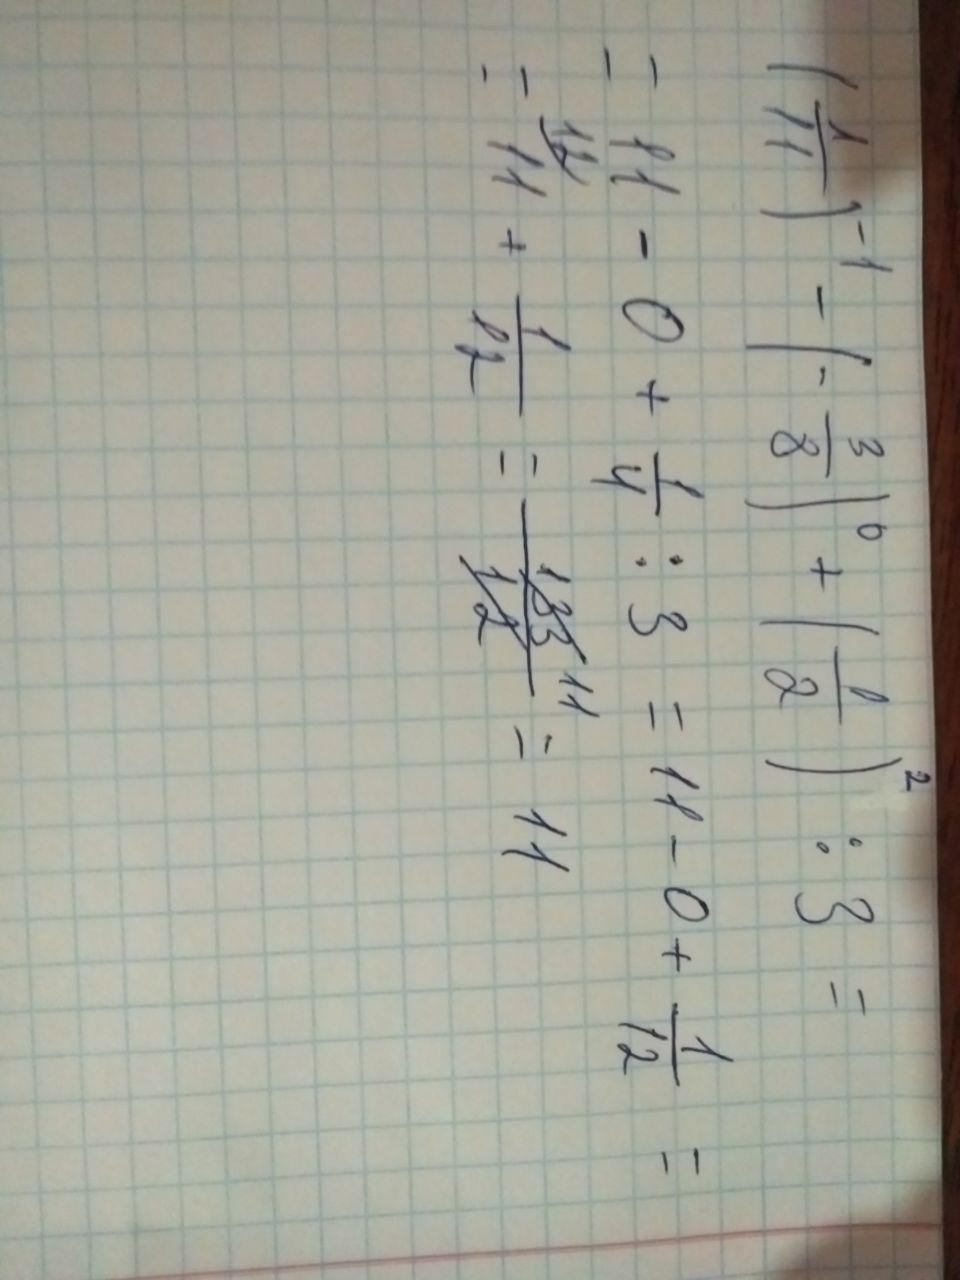 (1/11)^-1 - (-3/8)^0 + (1/2)^2 : 3 =
= 11 - 0 + 1/4 : 3 = 11 - 0 + 1/12 =
= 12 11 + 1/12 = 133/12 11 = 11